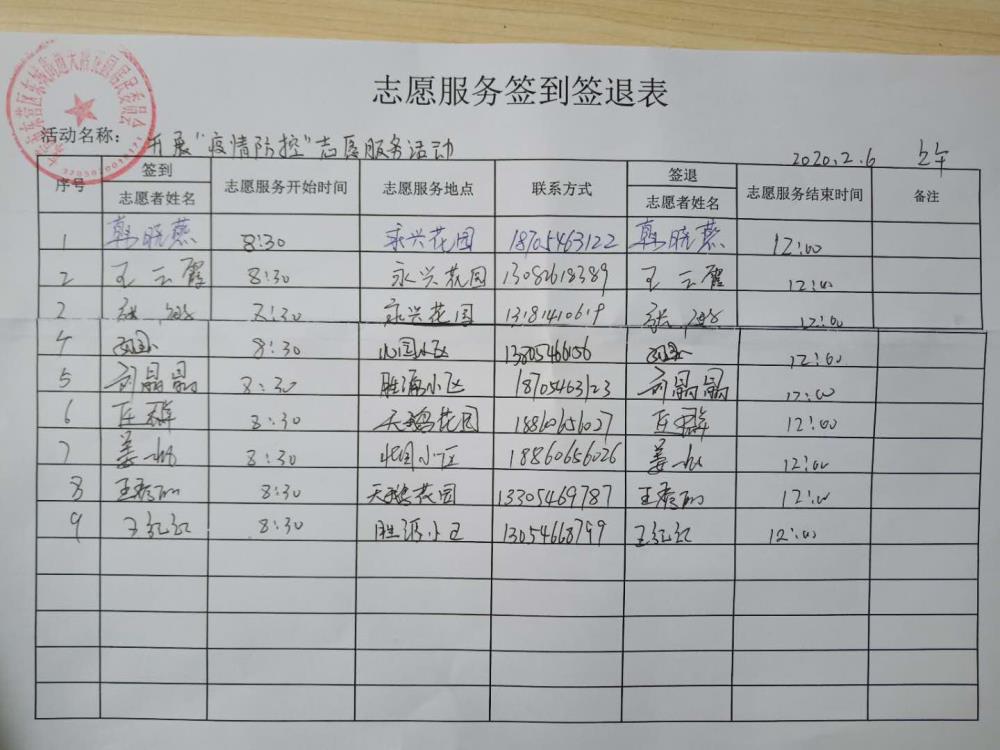 志愿服务签到签退表
活动名称： 开展“疫情防控”志愿服务活动
2020.2.6 上午
序号 签到 志愿服务开始时间 志愿服务地点 联系方式 签退 志愿服务结束时间 备注
志愿者姓名 志愿者姓名
1 韩晓燕 8:30 永兴花园 18705463122 韩晓燕 12:00
2 王云霞 8:30 永兴花园 13082618389 王云霞 12:00
3 张 8:30 永兴花园 13181410619 张 12:00
4 8:30 小区 13805466156 12:00
5 刘晶晶 8:30 胜源小区 18705463123 刘晶晶 12:00
6 8:30 天鹅花园 18860656027 12:00
7 姜 8:30 小区 18860656026 姜 12:00
8 王秀丽 8:30 天鹅花园 13305469787 王秀丽 12:00
9 王红红 8:30 胜源小区 13054668799 王红红 12:00